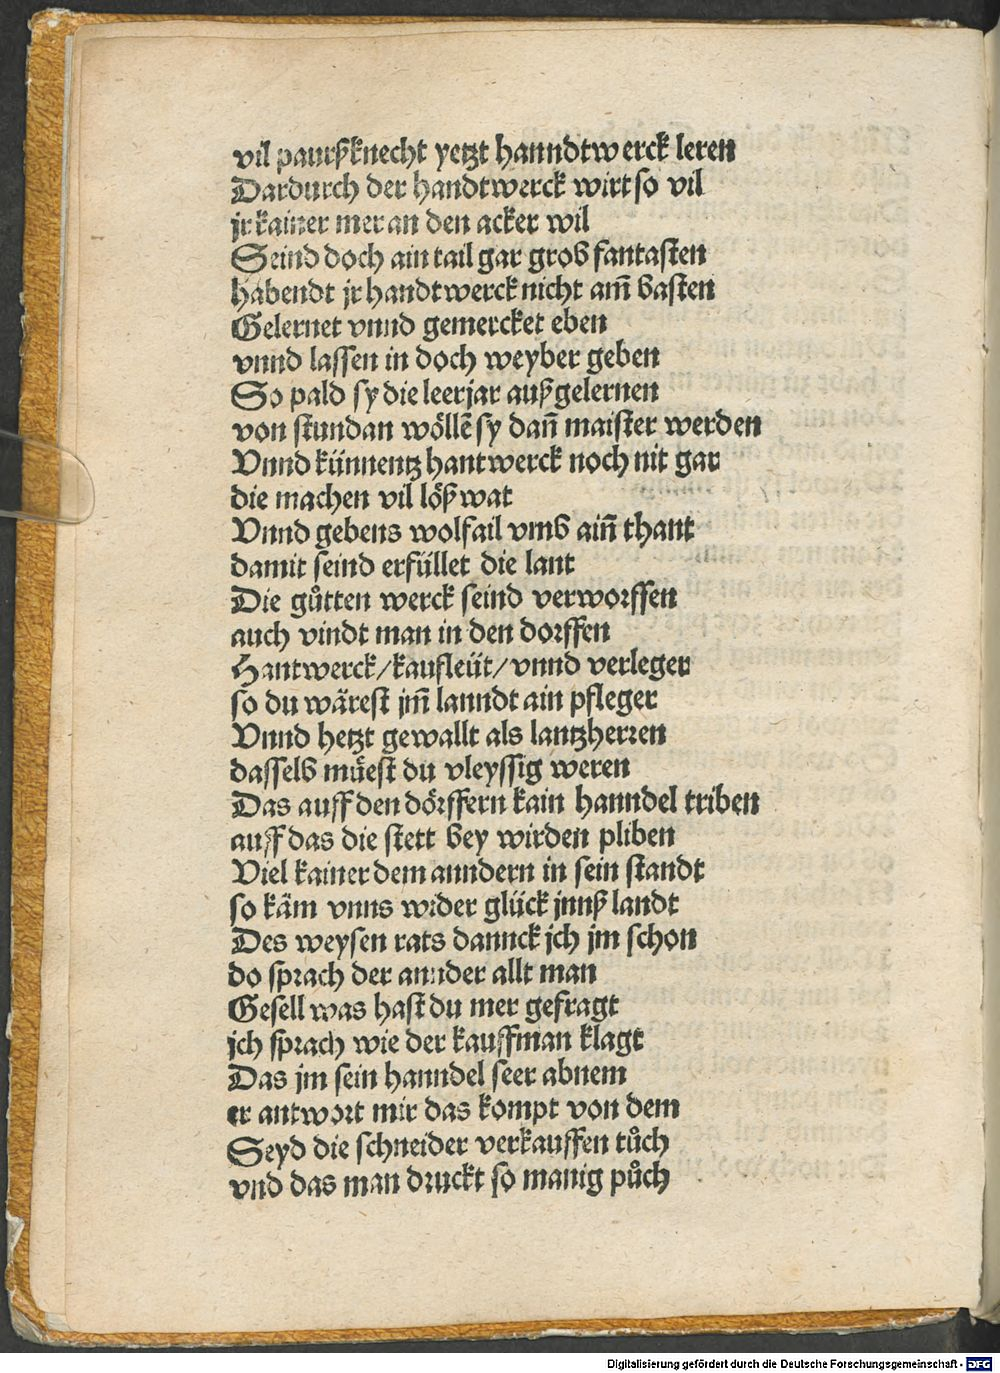 vil paurßknecht yetzt hanndtwerck leren
Dardurch der handtwerck wirt so vil
jr kainer mer an den acker wil
Seind doch ain tail gar grob fantasten
habendt jr handtwerck nicht am̃ basten
Gelernet vnnd gemercket eben
vnnd lassen in doch weyber geben
So pald sy die leerjar außgelernen
von stundan wöllē sy dañ maister werden
Vnnd künnentz hantwerck noch nit gar
die machen vil löß wat
Vnnd gebens wolfail vmb aiñ thant
damit seind erfüllet die lant
Die gůtten werck seind verworffen
auch vindt man in den dorffen
Hantwerck/kaufleüt/vnnd verleger
so du wärest jm̃ lanndt ain pfleger
Vnnd hetzt gewallt als lantzherren
dasselb müest du vleyssig weren
Das auff den dörffern kain hanndel triben
auff das die stett bey wirden pliben
Viel kainer dem anndern in sein standt
so käm vnns wider glück jnnß landt
Des weysen rats dannck jch jm schon
do sprach der annder allt man
Gesell was hast du mer gefragt
jch sprach wie der kauffman klagt
Das jm sein hanndel seer abnem
er antwort mir das kompt von dem
Seyd die schneider verkauffen tůch
vnd das man druckt so manig půch
Digitalisierung gefördert durch die Deutsche Forschungsgemeinschaft - DFG